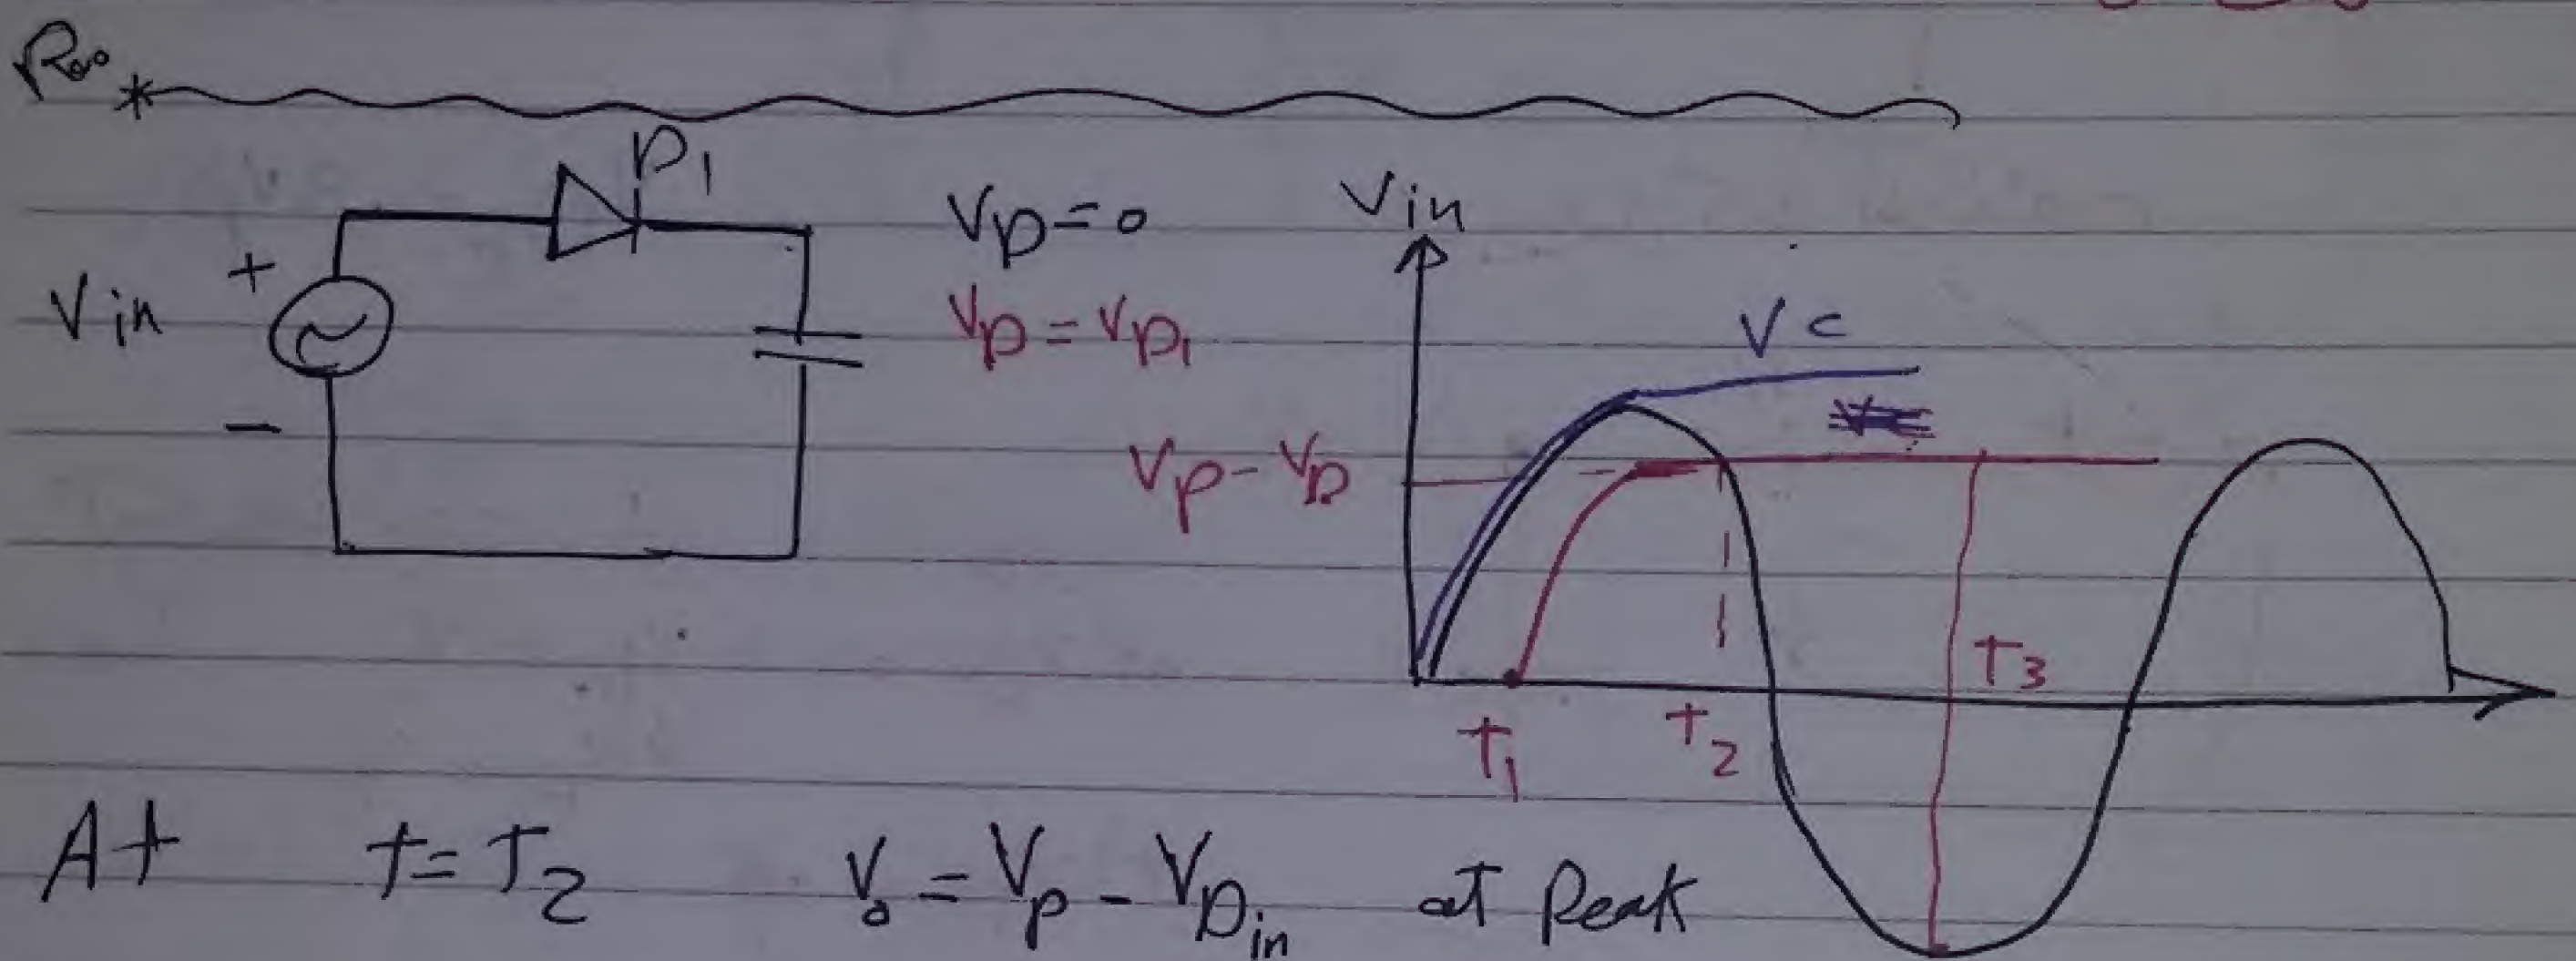 D1
Vin
+
−
VD = 0
VD = VD1
Vin
Vc
Vp − VD
T1
T2
T3
At t = T2 Vo = Vp − VDin at Peak